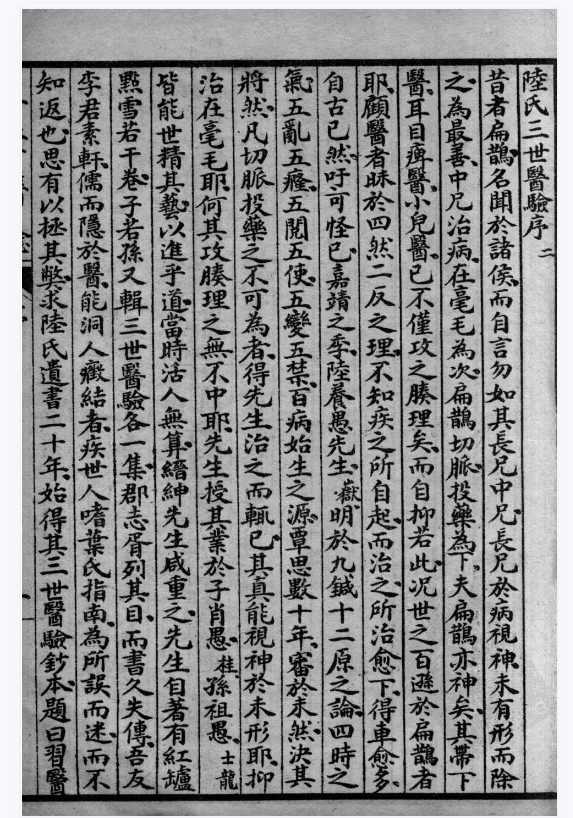 陸氏三世醫驗序 二
昔者扁鵲名聞於諸侯而自言勿如其長兄中兄長兄於病視神未有形而除
之為最善中兄治病在毫毛為次扁鵲切脈投藥為下夫扁鵲亦神矣其帶下
醫耳目痺醫小兒醫已不僅攻之腠理矣而自抑若此況世之百遜於扁鵲者
耶顧醫者昧於四然二反之理不知疾之所自起而治之所治愈下得車愈多
自古已然吁可怪已嘉靖之季陸養愚先生嶽明於九鍼十二原之論四時之
氣五亂五癃五閱五使五變五禁百病始生之源覃思數十年審於未然決其
將然凡切脈投藥之不可為者得先生治之而輒已其真能視神於未形耶抑
治在毫毛耶何其攻腠理之無不中耶先生授其業於子肖愚桂孫祖愚士龍
皆能世精其藝以進乎道當時活人無算縉紳先生咸重之先生自著有紅罏
點雪若干卷子若孫又輯三世醫驗各一集郡志胥列其目而書久失傳吾友
李君素軒儒而隱於醫能洞人癥結者疾世人嗜葉氏指南為所誤而迷而不
知返也思有以拯其弊求陸氏遺書二十年始得其三世醫驗鈔本題曰習醫